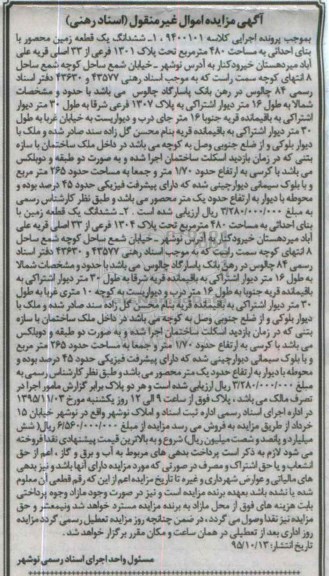 آگهی مزایده اموال غیرمنقول (اسناد رهنی)
بموجب پرونده اجرایی کلاسه ۹۴۰۰۱۰۱ ، ۱ـ ششدانگ یک قطعه زمین محصور با
بنای احداثی به مساحت ۴۸۰ مترمربع تحت پلاک ۱۳۰۱ فرعی از ۳۳ اصلی قریه علی
آباد میردهستان خیرودکنار به آدرس نوشهر ـ خیابان شمع ساحل کوچه شمع ساحل
۸ انتهای کوچه سمت راست که به موجب اسناد رهنی ۴۳۵۷۷ و ۴۳۶۳۰ دفتر اسناد
رسمی ۸۴ چالوس در رهن بانک پاسارگاد چالوس می باشد با حدود و مشخصات
شمالا به طول ۱۶ متر دیوار اشتراکی به پلاک ۱۳۰۷ فرعی شرقا به طول ۳۰ متر دیوار
اشتراکی به باقیمانده قریه جنوبا ۱۶ متر جای درب و دیواریست به خیابان غربا به طول
۳۰ متر دیوار اشتراکی به باقیمانده قریه بنام محسن گل زاده سند صادر شده و ملک با
دیوار بلوکی و از ضلع جنوبی وصل به کوچه می باشد در داخل ملک ساختمان با سازه
بتنی که در زمان بازدید اسکلت ساختمان اجرا شده و به صورت دو طبقه و دوبلکس
می باشد با کرسی به ارتفاع حدود ۱/۷۰ متر و جمعا به مساحت حدود ۲۶۵ متر مربع
و با بلوک سیمانی دیوارچینی شده که دارای پیشرفت فیزیکی حدود ۴۵ درصد بوده و
محوطه با دیوار به ارتفاع حدود یک متر محصور می باشد و طبق نظر کارشناس رسمی
به مبلغ ۳/۲۸۰/۰۰۰/۰۰۰ ریال ارزیابی شده است . ۲ـ ششدانگ یک قطعه زمین با
بنای احداثی به مساحت ۴۸۰ مترمربع تحت پلاک ۱۳۰۴ فرعی از ۳۳ اصلی قریه علی
آباد میردهستان خیرودکنار به آدرس نوشهر ـ خیابان شمع ساحل کوچه شمع ساحل ۸
انتهای کوچه سمت راست که به موجب اسناد رهنی ۴۳۵۷۷ و ۴۳۶۳۰ دفتر اسناد
رسمی ۸۴ چالوس در رهن بانک پاسارگاد چالوس می باشد با حدود و مشخصات شمالا
به طول ۱۶ متر دیوار اشتراکی به باقیمانده قریه شرقا به طول ۳۰ متر دیوار اشتراکی به
باقیمانده قریه جنوبا به طول ۱۶ متر درب و دیواریست به کوچه ۱۰ متری غربا به طول
۳۰ متر دیوار اشتراکی به باقیمانده قریه بنام محسن گل زاده سند صادر شده و ملک با
دیوار بلوکی و از ضلع جنوبی وصل به کوچه می باشد در داخل ملک ساختمان با سازه
بتنی که در زمان بازدید اسکلت ساختمان اجرا شده و به صورت دو طبقه و دوبلکس
می باشد با کرسی به ارتفاع حدود ۱/۷۰ متر و جمعا به مساحت حدود ۲۶۵ متر مربع
و با بلوک سیمانی دیوارچینی شده که دارای پیشرفت فیزیکی حدود ۴۵ درصد بوده و
محوطه با دیوار به ارتفاع حدود یک متر محصور می باشد و طبق نظر کارشناس رسمی به
مبلغ ۳/۲۸۰/۰۰۰/۰۰۰ ریال ارزیابی شده است و هر دو پلاک برابر گزارش مامور اجرا در
تصرف مالک می باشد ، پلاک فوق از ساعت ۹ الی ۱۲ روز یکشنبه مورخ ۱۳۹۵/۱۱/۰۳
در اداره اجرای اسناد رسمی اداره ثبت اسناد و املاک نوشهر واقع در نوشهر خیابان ۱۵
خرداد از طریق مزایده به فروش می رسد مزایده از مبلغ ۶/۵۶۰/۰۰۰/۰۰۰ ریال(شش
میلیارد و پانصد و شصت میلیون ریال) شروع و به بالاترین قیمت پیشنهادی نقدا فروخته
می شود لازم به ذکر است پرداخت بدهی های مربوط به آب و برق و گاز ، اعم از حق
انشعاب و یا حق اشتراک و مصرف در صورتی که مورد مزایده دارای آنها باشد و نیز بدهی
های مالیاتی و عوارض شهرداری و غیره تا تاریخ مزایده اعم از این که رقم قطعی آن معلوم
شده یا نشده باشد بعهده برنده مزایده است و نیز در صورت وجود مازاد وجوه پرداختی
بابت هزینه های فوق از محل مازاد به برنده مزایده مسترد خواهد شد ونیمعشر و حق
مزایده نیز نقدا وصول می گردد ، در ضمن چنانچه روز مزایده تعطیل رسمی گردد مزایده
روز اداری بعد از تعطیلی در همان ساعت و مکان مقرر برگزار خواهد شد .
تاریخ انتشار: ۹۵/۱۰/۱۳
مسئول واحد اجرای اسناد رسمی نوشهر